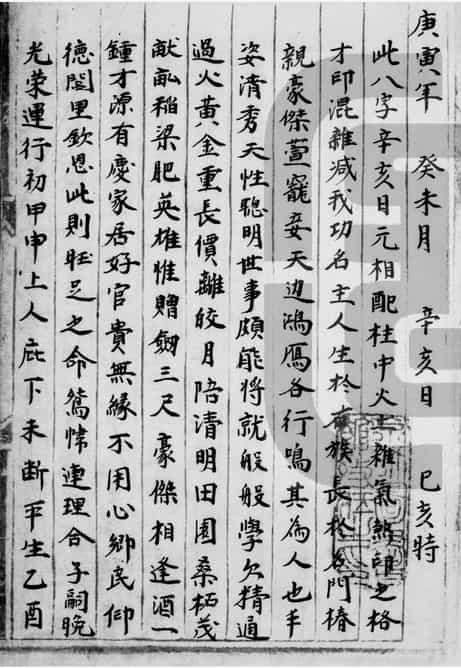 庚寅年 癸未月 辛亥日 己亥時
此八字辛亥日元相配柱中火土雜氣煞印之格
才印混雜减我功名主人生於 族長於名門椿
親豪傑萱寵妾天边鴻鴈各行鳴其為人也丰
姿清秀天性聰明世事頗能将就般般學欠精通
過火黄金重長價離皎月陪清明田園桑柘茂
献畝稲梁肥英雄惟贈劔三尺豪傑相逢酒一
鍾才源有慶家居好官貴無緣不用心鄉民仰
德閭里欽恩此則旺足之命鴛幃連理合子嗣晚
光荣運行初甲申上人庇下未断平生乙酉